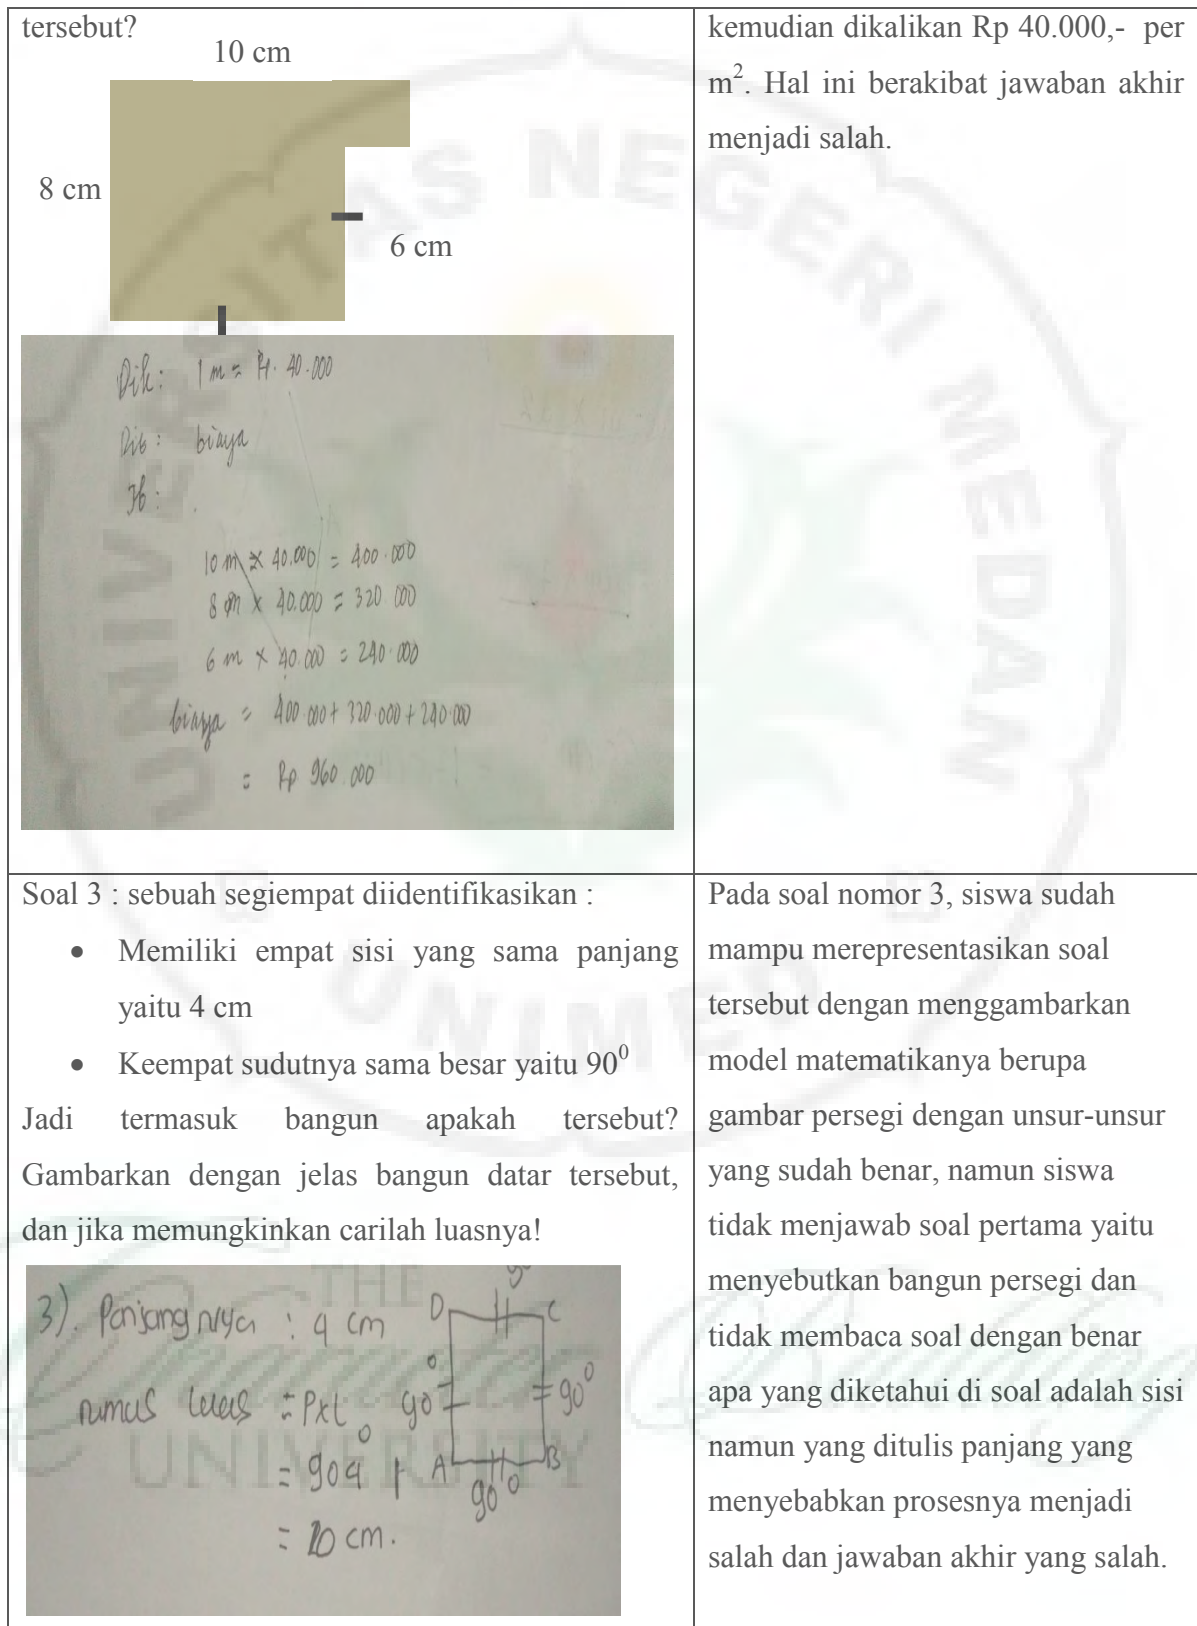 tersebut?
10 cm
8 cm
6 cm
Dik: 1 m = Rp. 40.000
Dit: biaya
Jb:
10 m × 40.000 = 400.000
8 m × 40.000 = 320.000
6 m × 40.000 = 240.000
biaya = 400.000 + 320.000 + 240.000
= Rp 960.000
kemudian dikalikan Rp 40.000,- per
m². Hal ini berakibat jawaban akhir
menjadi salah.
Soal 3 : sebuah segiempat diidentifikasikan :
• Memiliki empat sisi yang sama panjang
yaitu 4 cm
• Keempat sudutnya sama besar yaitu 90⁰
Jadi termasuk bangun apakah tersebut?
Gambarkan dengan jelas bangun datar tersebut,
dan jika memungkinkan carilah luasnya!
3). Panjang nya : 4 cm
rumus luas = P×L
= 904
= 20 cm.
D C
90⁰ 90⁰
A B
90⁰
Pada soal nomor 3, siswa sudah
mampu merepresentasikan soal
tersebut dengan menggambarkan
model matematikanya berupa
gambar persegi dengan unsur-unsur
yang sudah benar, namun siswa
tidak menjawab soal pertama yaitu
menyebutkan bangun persegi dan
tidak membaca soal dengan benar
apa yang diketahui di soal adalah sisi
namun yang ditulis panjang yang
menyebabkan prosesnya menjadi
salah dan jawaban akhir yang salah.
UNIVERSITAS NEGERI MEDAN
UNIMED
THE
Character Building
UNIVERSITY